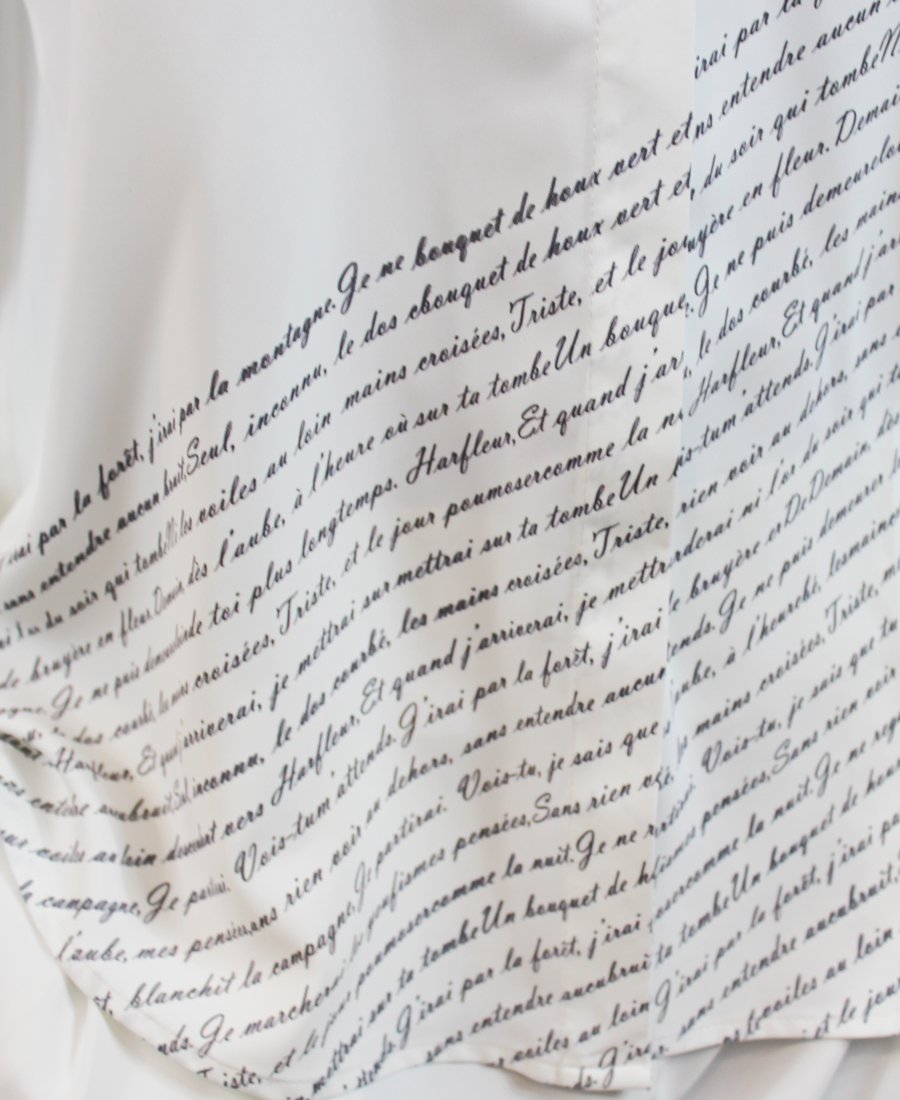 irai par la
irai par la forêt, j'irai par la montagne. Je ne bouquet de houx vert et ns entendre aucun
sans entendre aucun bruit, Seul, inconnu, le dos cbouquet de houx vert et, du soir qui tombe N
du soir qui tombe Ni les voiles au loin mains croisées, Triste, et le jou yère en fleur. Demai
de bruyère en fleur. Demain, dès l'aube, à l'heure où sur ta tombe Un bouque Je ne puis demeurelo
Je ne puis de toi plus longtemps. Harfleur, Et quand j'ar le dos courbé, les main
dos courbé, les mains croisées, Triste, et le jour poumosercomme la n Harfleur, Et quand j'ar
Harfleur, Et quand j'arriverai, je mettrai sur mettrai sur ta tombe Un is-tum'attends. J'irai par
inconnu, le dos courbé, les mains croisées, Triste, rien voir au dehors, sans
descendant vers Harfleur, Et quand j'arriverai, je mettr rderai ni l'or du soir qui
la campagne, Je partirai. Vois-tum'attends. J'irai par la forêt, j'irai e bruyère en DeDemain, dès
l'aube, mes pensées, ans rien voir au dehors, sans entendre aucun ends. Je ne puis demeurer
blanchit la campagne, Je partirai. Vois-tu, je sais que ube, à l'heurbé, lesmains
nds. Je marcherai pensées, Sans rien mains croisées, Triste,
Triste, et le jour poumosercomme la nuit. Je ne r Vois-tu, je sais que tu
mettrai sur ta tombe Un bouquet de h mes pensées, Sans rien voir
ttends J'irai par la forêt, j'irai osercomme la nuit. Je ne reg
sans entendre aucubrui ta tombe Un bouquet de hou
voiles au loin J'irai par la forêt, j'irai pa
ds. J'irai sans entendre aucubruit,
les voiles au loin
et le jour